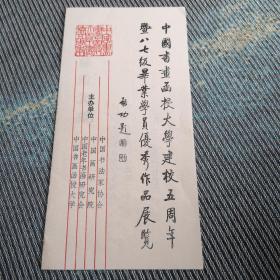 中國書畫函授大學建校五周年
暨八七級畢業學員優秀作品展覽
啟功題
主办单位
中国书法家协会
中国画研究院
中国老年书画研究会
中国书画函授大学